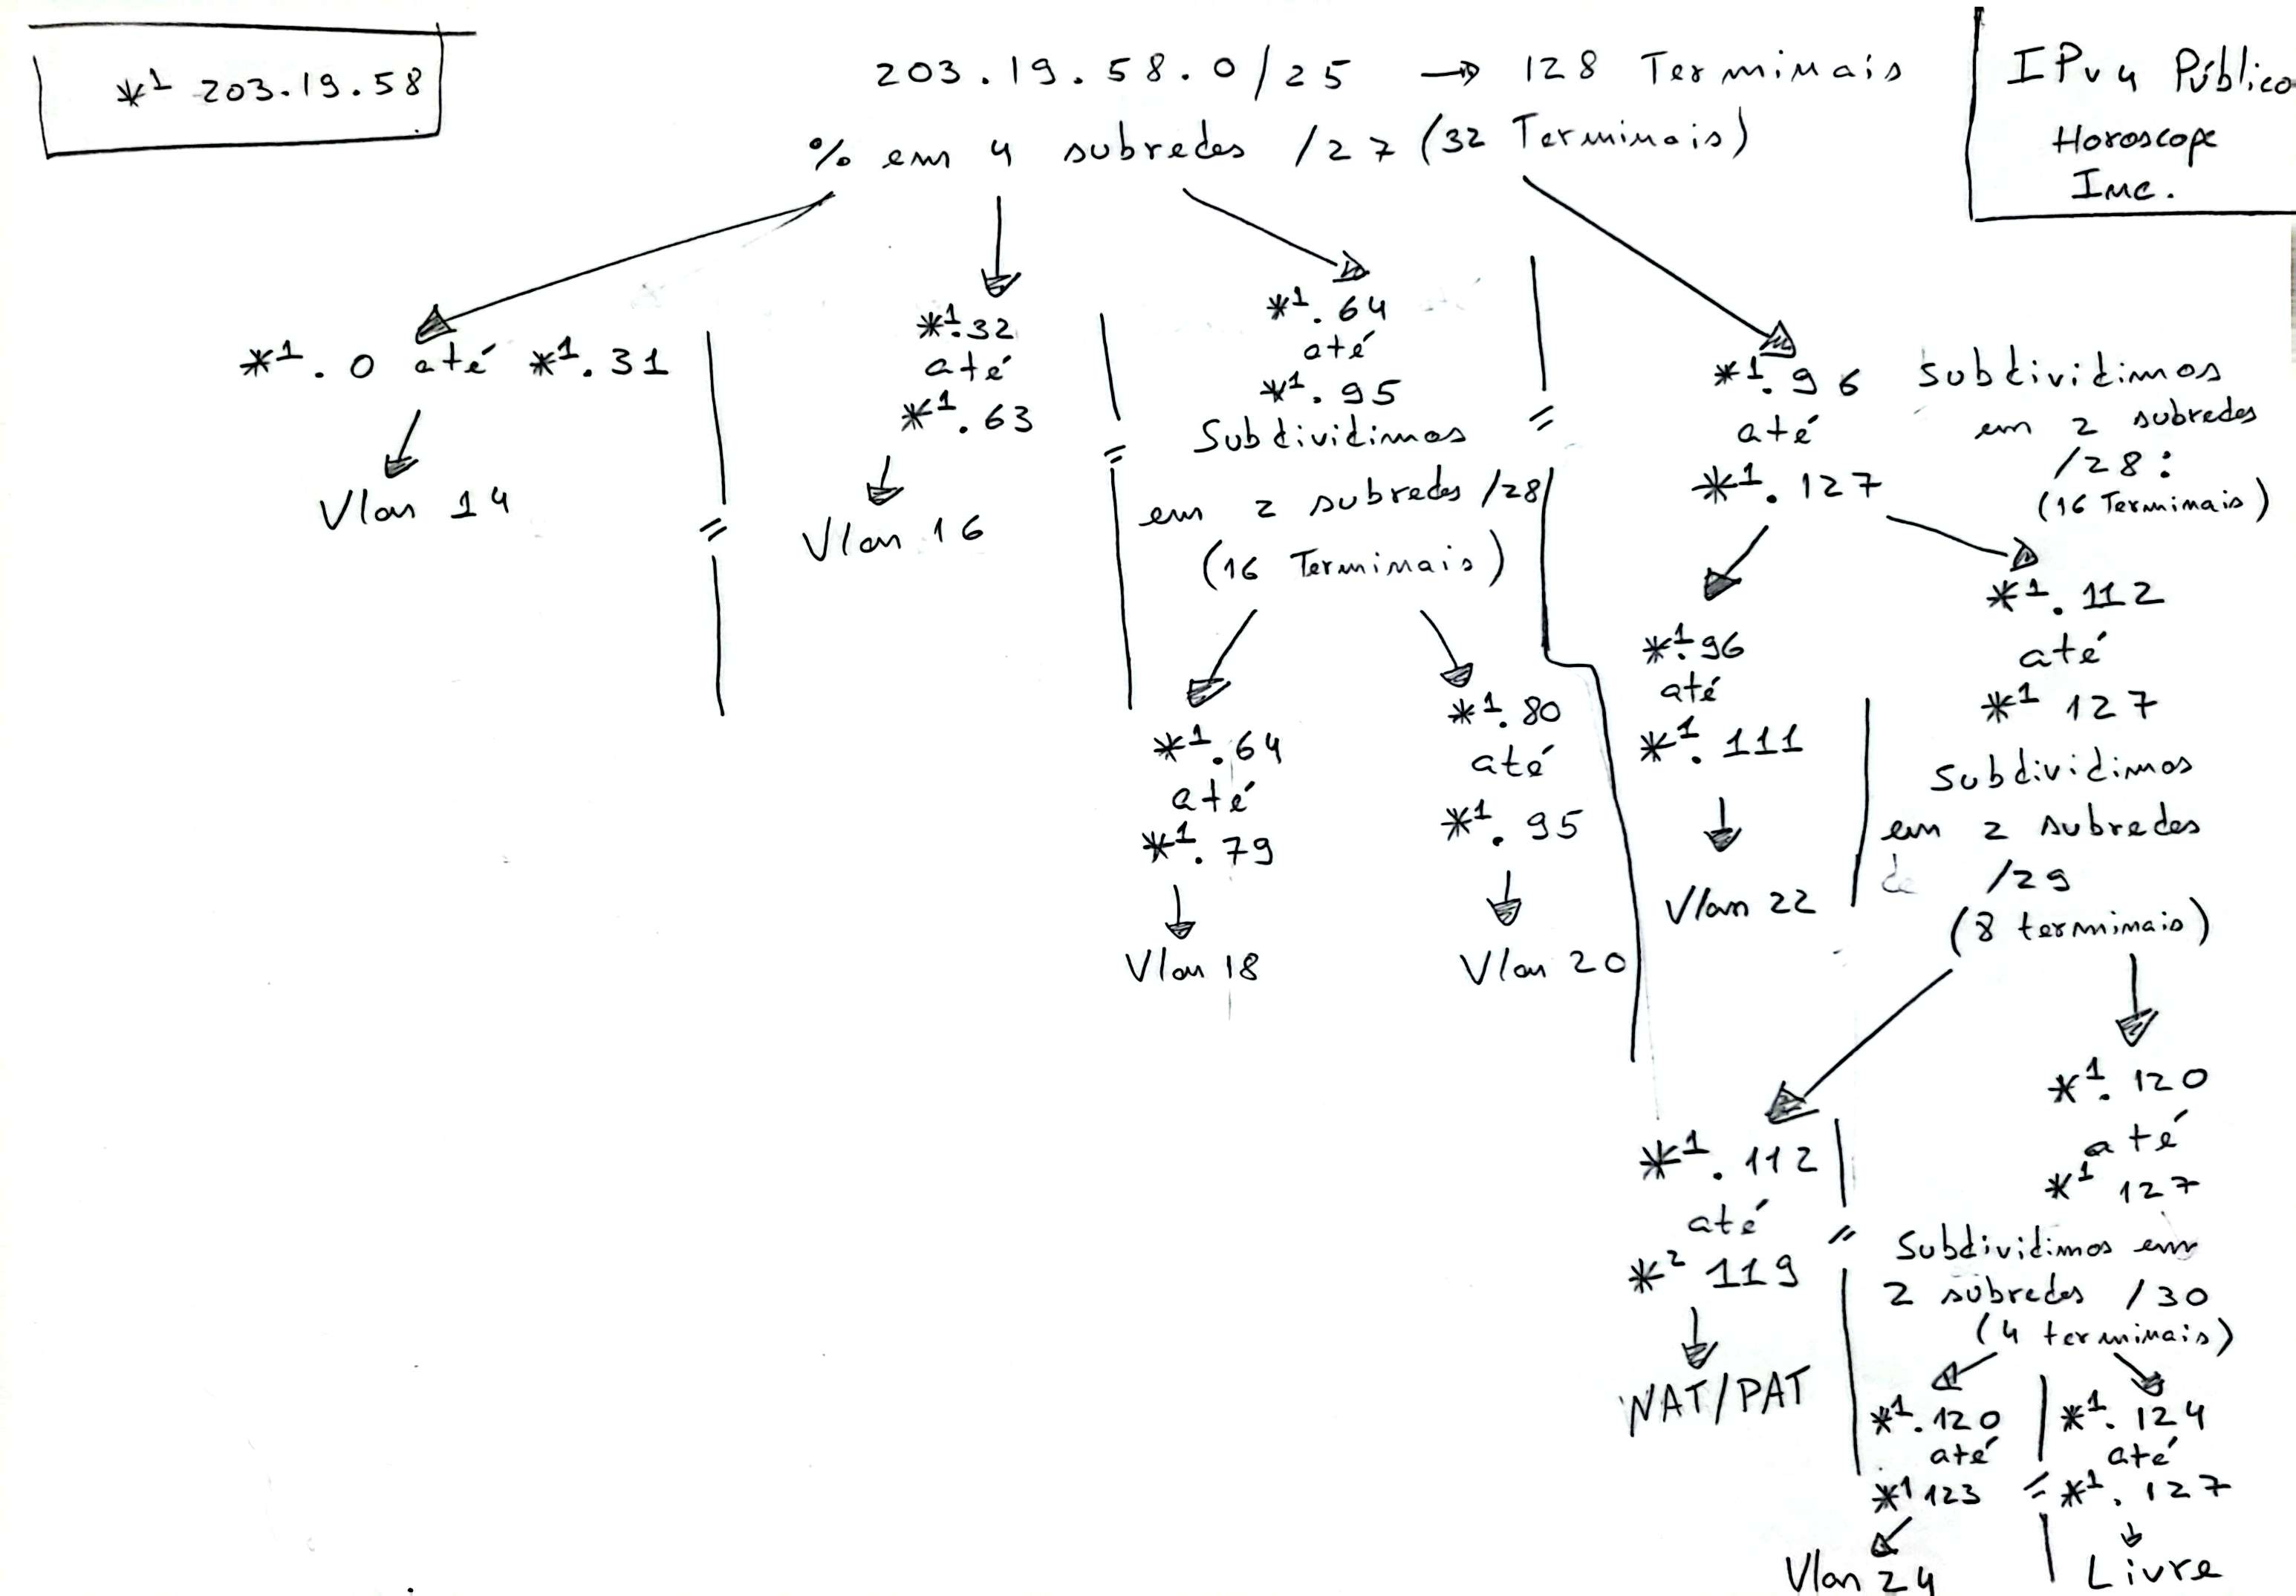 *1 203.19.58
203.19.58.0/25 → 128 Terminais
% em 4 subredes /27 (32 Terminais)
IPv4 Público
Horoscope
Inc.
*1.0 até *1.31
Vlan 14
*1.32
até
*1.63
Vlan 16
*1.64
até
*1.95
Subdividimos
em 2 subredes /28
(16 Terminais)
*1.64
até
*1.79
Vlan 18
*1.80
até
*1.95
Vlan 20
*1.96
até
*1.127
Subdividimos
em 2 subredes
/28:
(16 Terminais)
*1.96
até
*1.111
Vlan 22
*1.112
até
*1 127
Subdividimos
em 2 subredes
de /29
(8 terminais)
*1.112
até
*2 119
NAT/PAT
*1.120
até
*1 127
Subdividimos em
2 subredes /30
(4 terminais)
*1.120
até
*1 123
Vlan 24
*1.124
até
*1.127
Livre